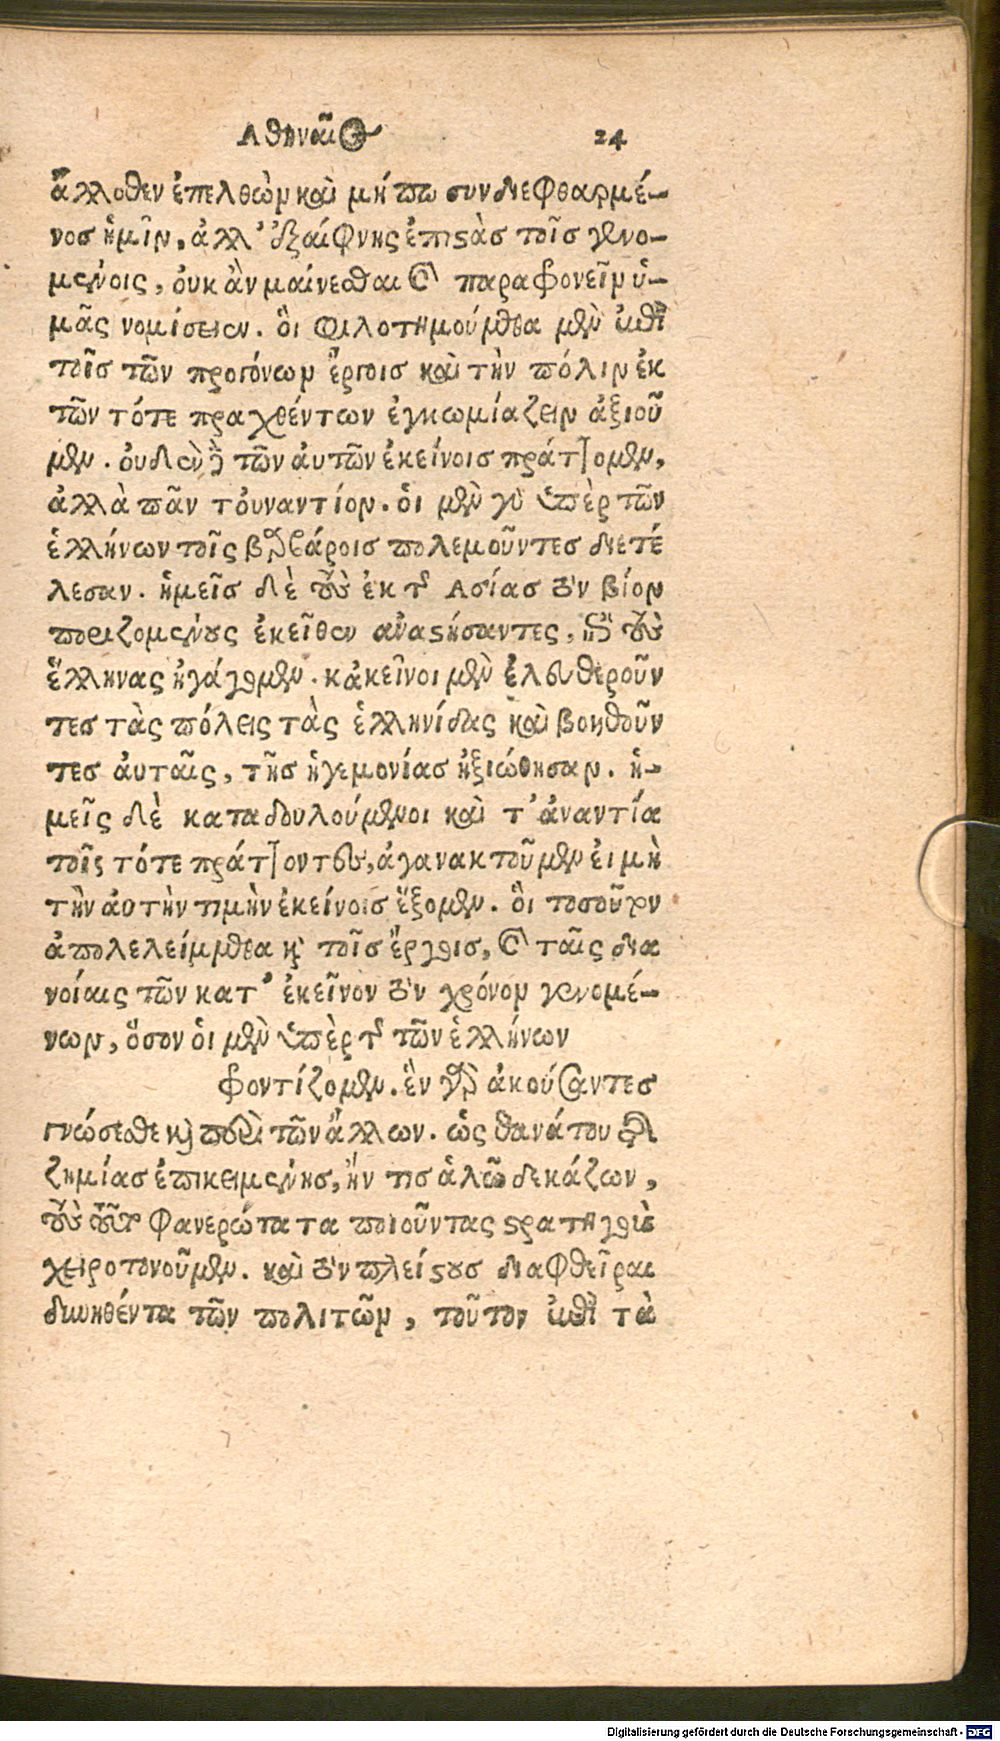 Αθηναῖος 24
ἄλλοθεν ἐπελθὼν καὶ μήπω συνδιεφθαρμέ-
νος ἡμῖν, ἀλλ' ἐξαίφνης ἐπιστὰς τοῖς γενο-
μένοις, ὀυκ ἂν μαίνεσθαι καὶ παραφρονεῖν ὑ-
μᾶς νομίσειεν. ὃι φιλοτημούμεθα μὲν ἐπὶ
τοῖς τῶν προγόνων ἔργοις καὶ τὴν πόλιν ἐκ
τῶν τότε πραχθέντων ἐγκωμίαζειν ἀξιοῦ
μεν. ὀυδὲν δὲ τῶν ἀυτῶν ἐκείνοις πράττομεν,
ἀλλὰ πᾶν τὀυναντίον. ὁι μὲν γὰρ ὑπὲρ τῶν
ἑλλήνων τοῖς βαρβάροις πολεμοῦντες διετέ
λεσαν. ἡμεῖς δὲ τοὺς ἐκ τῆς Ασίας τὸν βίον
ποριζομένους ἐκεῖθεν ἀναστήσαντες, ἐπὶ τοὺς
ἕλληνας ἠγάγομεν. κἀκεῖνοι μὲν ἐλευθεροῦν
τες τὰς πόλεις τὰς ἑλληνίδας καὶ βοηθοῦν
τες ἀυταῖς, τῆς ἡγεμονίας ἠξιώθησαν. ἡ-
μεῖς δὲ καταδουλούμενοι καὶ τ' ἀναντία
τοῖς τότε πράττοντες, ἀγανακτοῦμεν ἐι μὴ
τὴν ἀυτὴν τιμὴν ἐκείνοις ἕξομεν. ὃι τοσοῦτον
ἀπολελείμμεθα καὶ τοῖς ἔργοις, καὶ ταῖς δια
νοίαις τῶν κατ' ἐκεῖνον τὸν χρόνον γενομέ-
νων, ὅσον ὁι μὲν ὑπὲρ τῆς τῶν ἑλλήνων
φροντίζομεν. ἓν γὰρ ἀκούσαντες
γνώσεσθε καὶ περὶ τῶν ἄλλων. ὡς θανάτου τῆς
ζημίας ἐπικειμένης, ἤν τις ἁλῶ δεκάζων,
τοὺς τοῦτο φανερώτατα ποιοῦντας στρατηγοὺς
χειροτονοῦμεν. καὶ τὸν πλείστους διαφθεῖραι
δυνηθέντα τῶν πολιτῶν, τοῦτον ἐπὶ τὰ
Digitalisierung gefördert durch die Deutsche Forschungsgemeinschaft - DFG